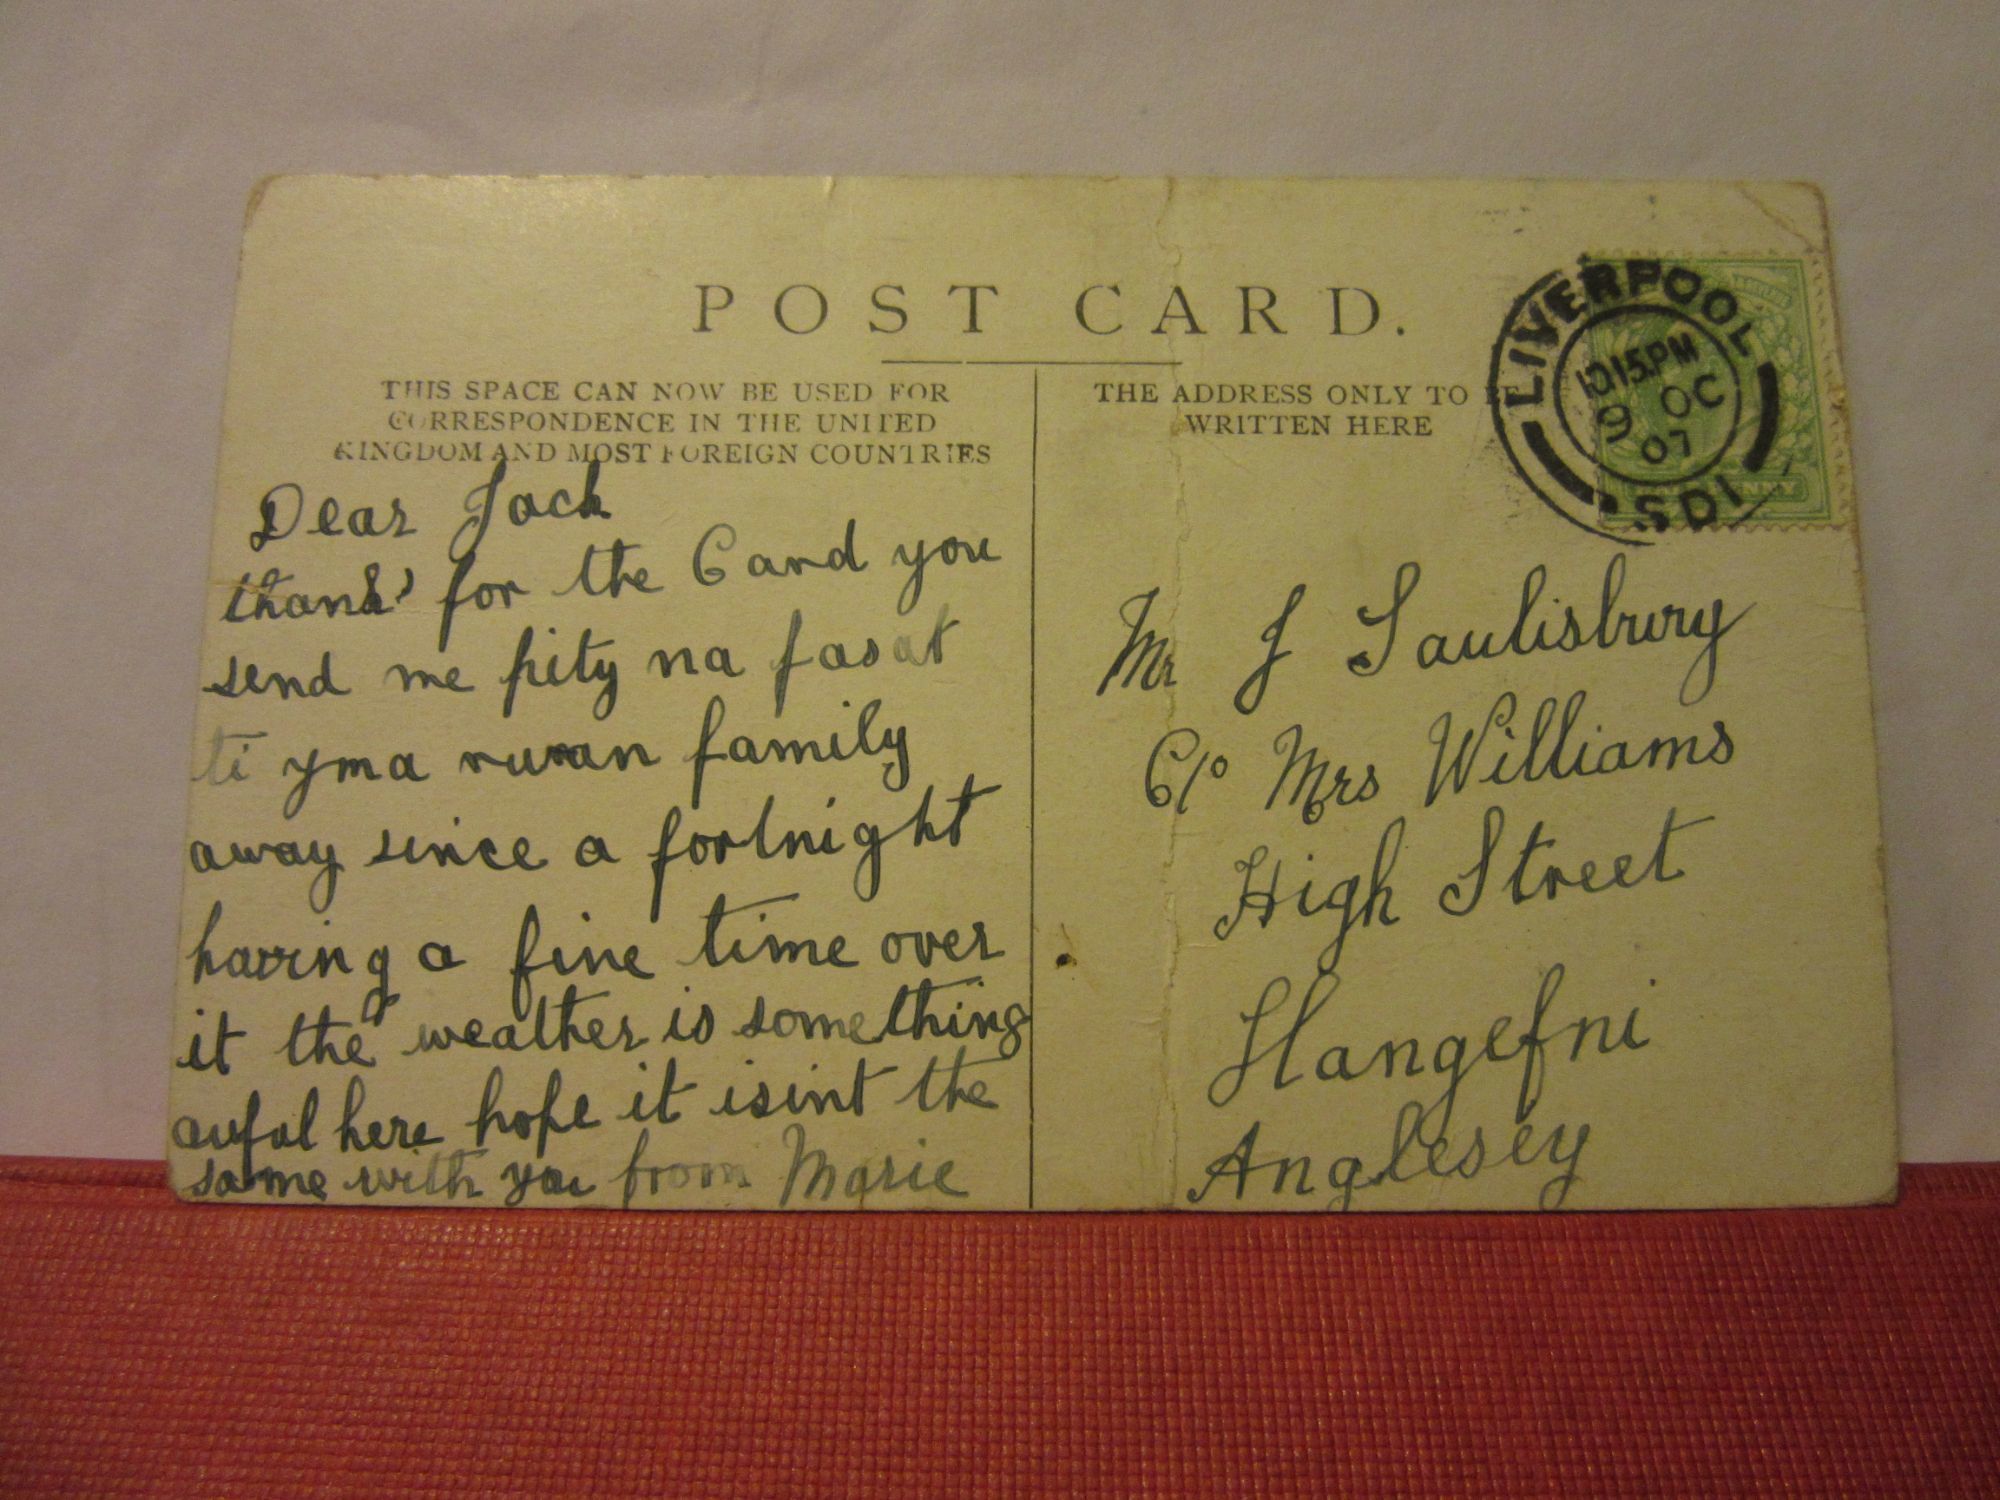 POST CARD.
THIS SPACE CAN NOW BE USED FOR
CORRESPONDENCE IN THE UNITED
KINGDOM AND MOST FOREIGN COUNTRIES
Dear Jack
thanks for the Card you
send me pity na fasat
ti yma rwan family
away since a fortnight
having a fine time over
it the weather is something
awful here hope it isint the
same with you from Marie
THE ADDRESS ONLY TO BE
WRITTEN HERE
LIVERPOOL
10.15.PM
9 OC
07
SD1
Mr J Saulisbury
C/o Mrs Williams
High Street
Llangefni
Anglesey